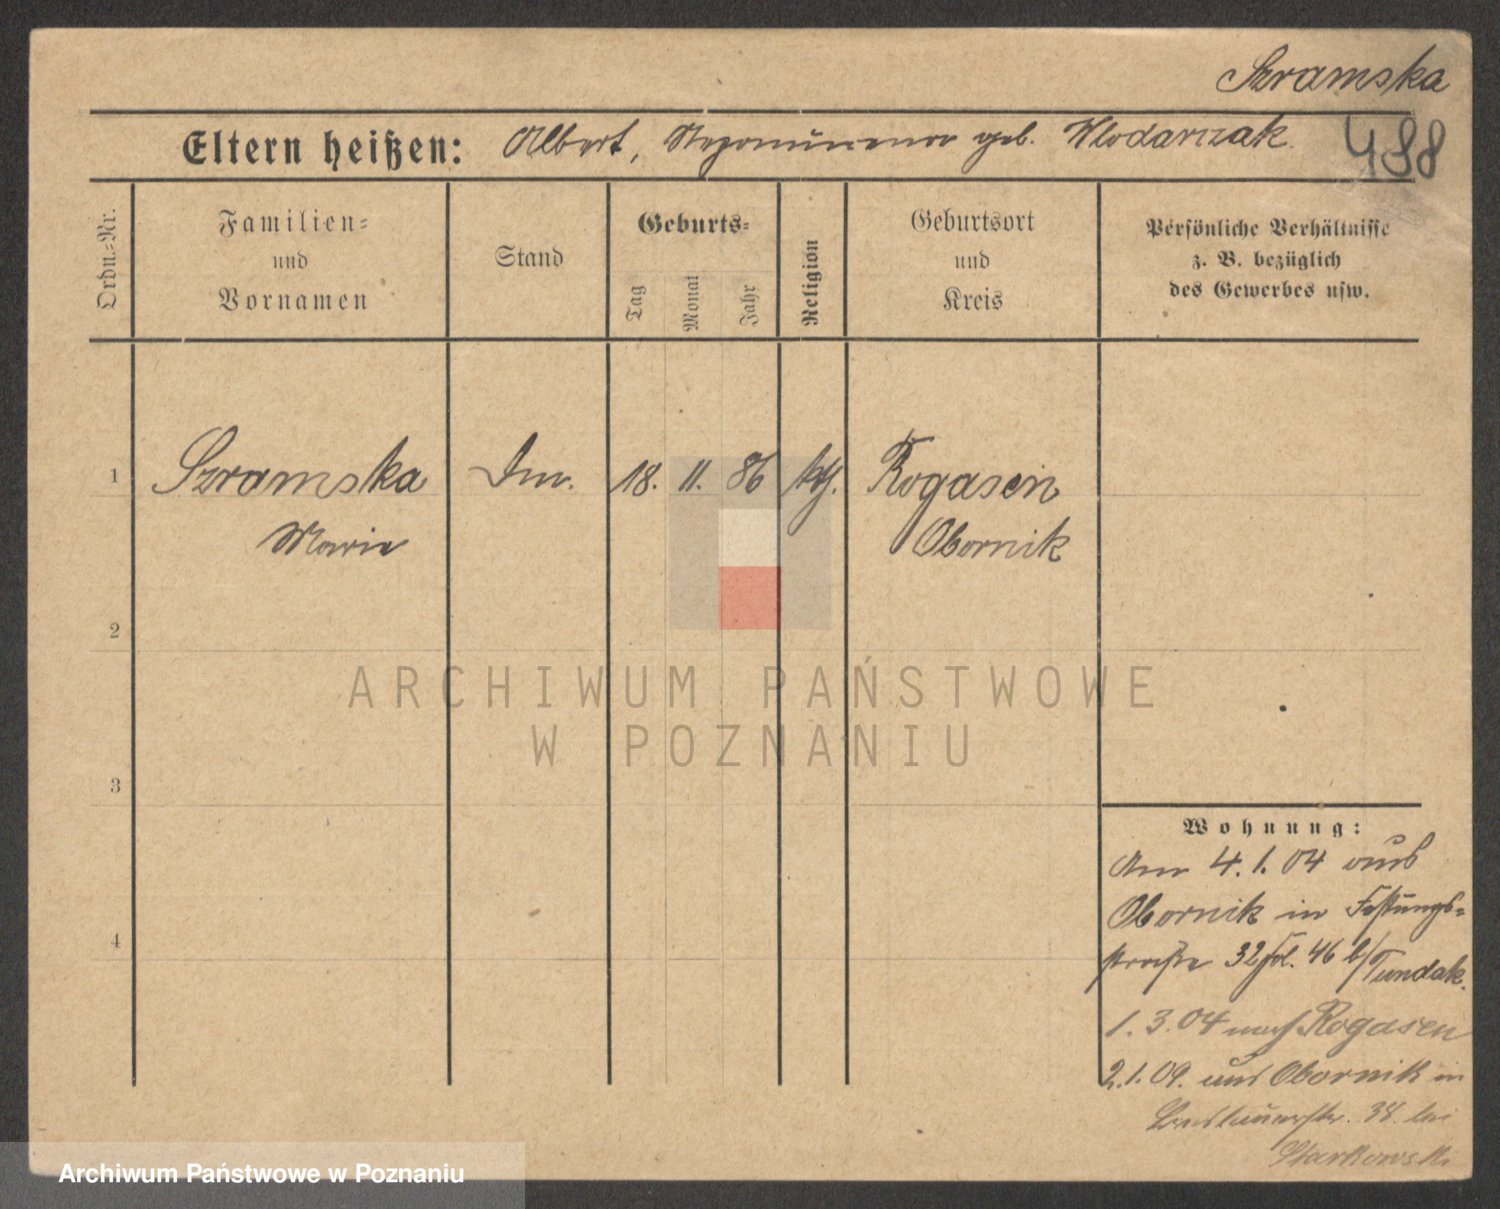 Szramska
Eltern heißen: Albert, Nepomucena geb. Wlodarczak
488
Ordn.=Nr.
Familien=
und
Vornamen
Stand
Geburts=
Tag
Monat
Jahr
Religion
Geburtsort
und
Kreis
Persönliche Verhältnisse
z. B. bezüglich
des Gewerbes usw.
1 Szramska 18. 11. 86 kth. Rogasen
Marie Obornik
2
ARCHIWUM PAŃSTWOWE
W POZNANIU
3
Wohnung:
Am 4.1.04 aus
Obornik in Festungs=
straße 32 46 b/Tundak.
4
1.3.04 nach Rogasen
2.1.09. aus Obornik in
38. bei
Starkowski
Archiwum Państwowe w Poznaniu